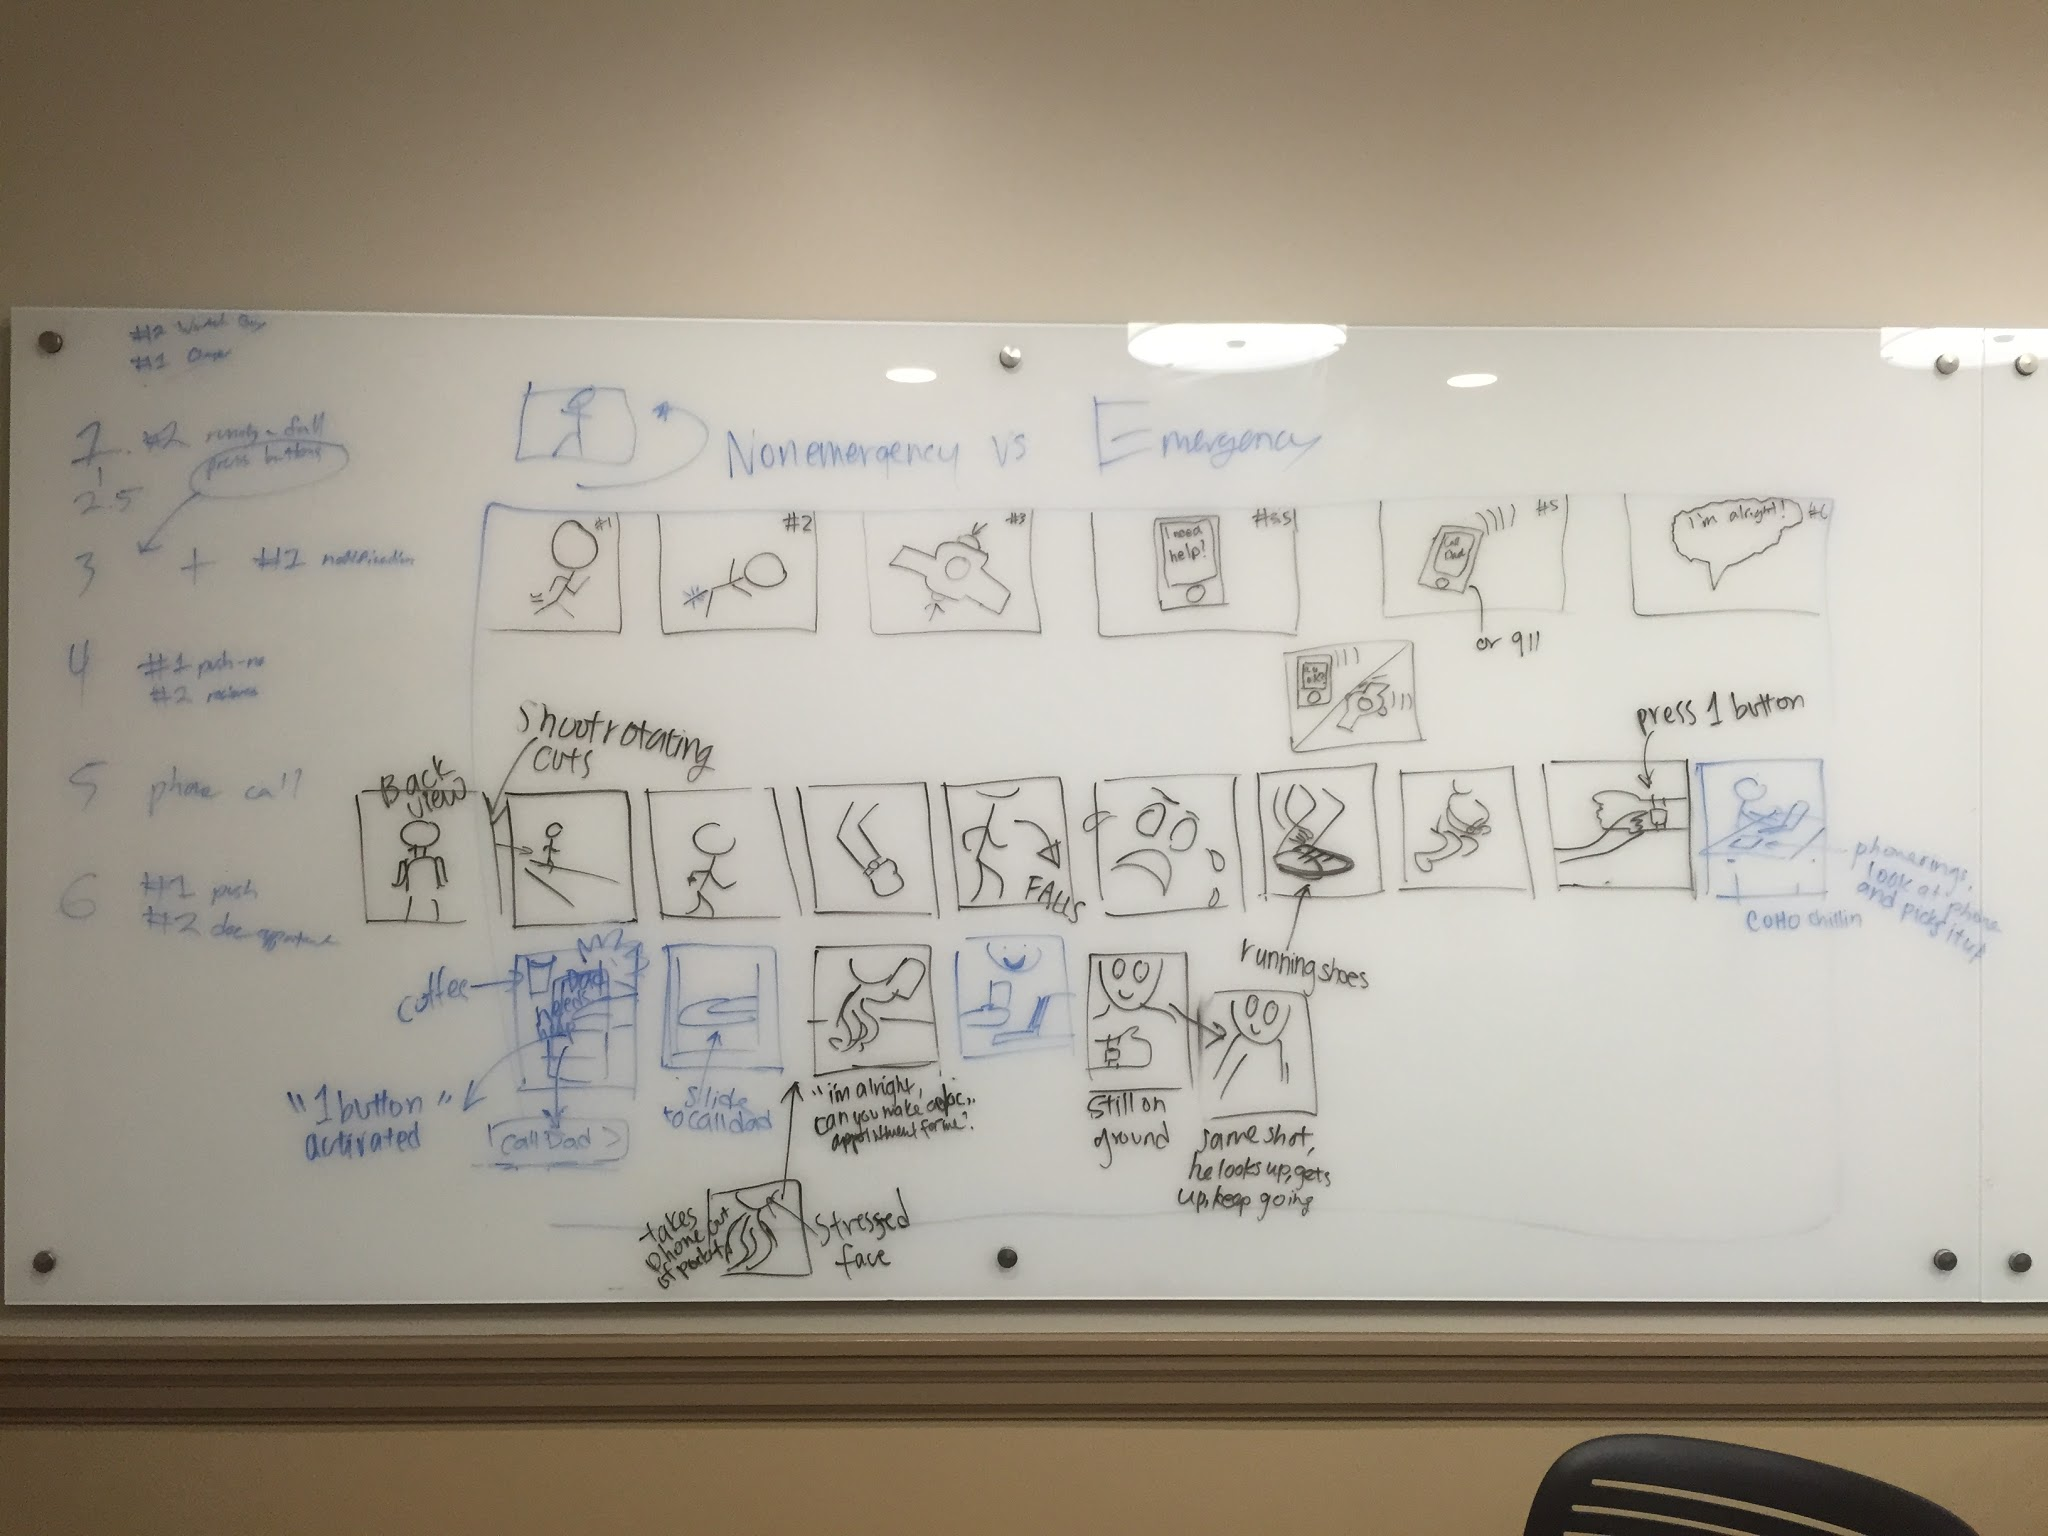 #2
#1
1. #2 fall
press buttons
2.5
3 + #1 notification
4 #1 push
#2
5 phone call
6 #1 push
#2
Nonemergency vs Emergency
#1
#2
#3
I need
help!
#3.5
Call
Dad
#5
or 911
I'm alright!
#6
Shoot rotating
cuts
Back
view
FALLS
press 1 button
running shoes
phone rings,
look at phone
and picks it up
COHO chillin
coffee
Dad
needs
help
"1 button"
activated
Call Dad >
Slide
to call dad
"i'm alright,
can you make a doc..
appointment for me?"
takes
phone out
of pocket
stressed
face
Still on
ground
same shot,
he looks up, gets
up, keep going